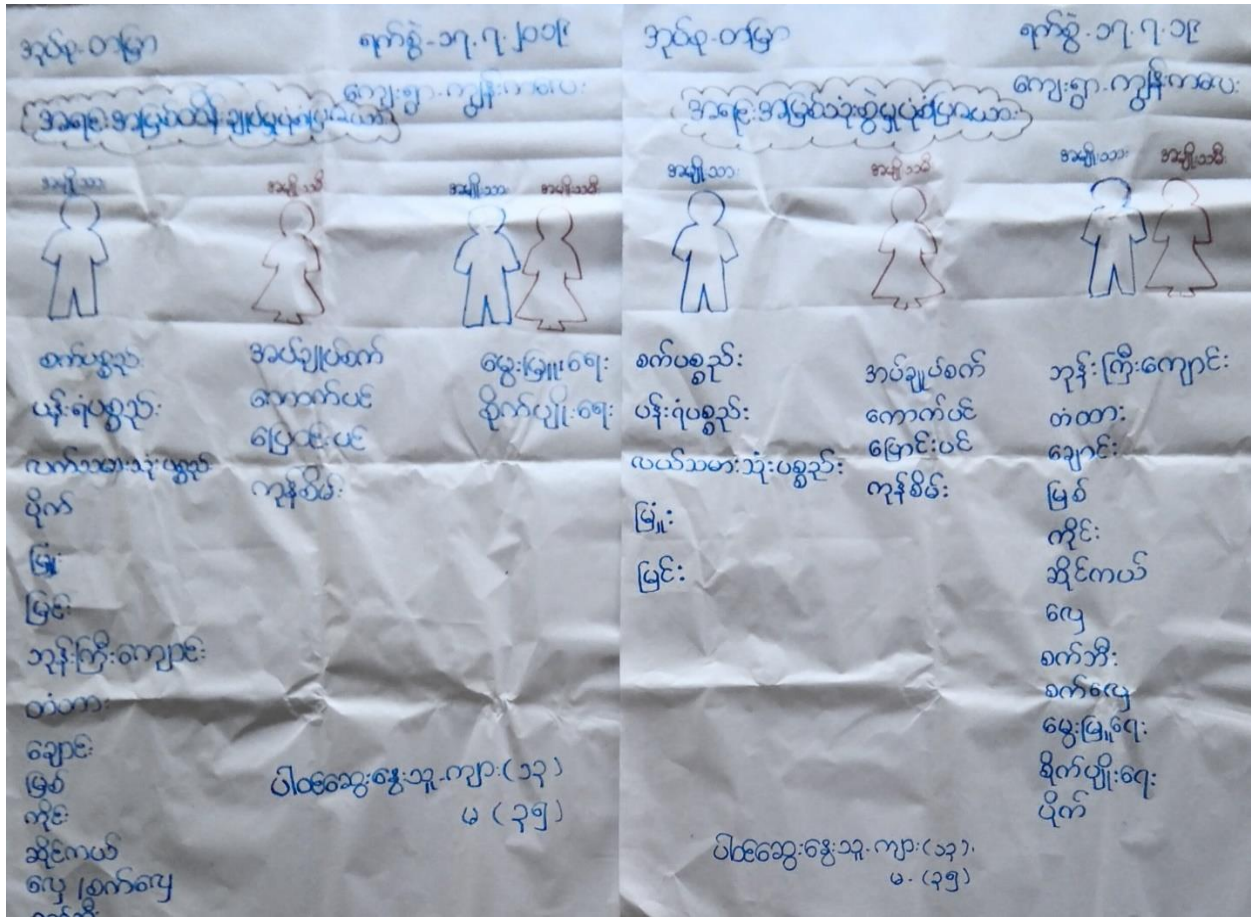 အုပ်စု-တမြာ
ရက်စွဲ-၁၇.၇.၂၀၁၉
ကျေးရွာ-ကျွန်းကလေး
အရင်းအမြစ်ထိန်းချုပ်မှုပုံစံပြဇယား
အမျိုးသား အမျိုးသမီး အမျိုးသား အမျိုးသမီး
စက်ပစ္စည်း အပ်ချုပ်စက် မွေးမြူးရေး
ပန်းရံပစ္စည်း ကောက်ပင် စိုက်ပျိုးရေး
ပြောင်းပင်
လက်သမားသုံးပစ္စည်း
ကုန်စိမ်း
ပိုက်
မြုံး
မြင်း
ဘုန်းကြီးကျောင်း
တံတား
ချောင်း
မြစ်
ကိုင်း
ဆိုင်ကယ်
လှေ/စက်လှေ
စက်ဘီး
ပါဝင်ဆွေးနွေးသူ-ကျား(၁၃)
မ (၃၅)
အုပ်စု-တမြာ
ရက်စွဲ-၁၇.၇.၁၉
ကျေးရွာ-ကျွန်းကလေး
အရင်းအမြစ်သုံးစွဲမှုပုံစံပြဇယား
အမျိုးသား အမျိုးသမီး အမျိုးသား အမျိုးသမီး
စက်ပစ္စည်း
ပန်းရံပစ္စည်း
လယ်သမားသုံးပစ္စည်း
မြုံး
မြင်း
အပ်ချုပ်စက်
ကောက်ပင်
ပြောင်းပင်
ကုန်စိမ်း
ဘုန်းကြီးကျောင်း
တံတား
ချောင်း
မြစ်
ကိုင်း
ဆိုင်ကယ်
လှေ
စက်ဘီး
စက်လှေ
မွေးမြူရေး
စိုက်ပျိုးရေး
ပိုက်
ပါဝင်ဆွေးနွေးသူ-ကျား(၁၃).
မ-(၃၅)